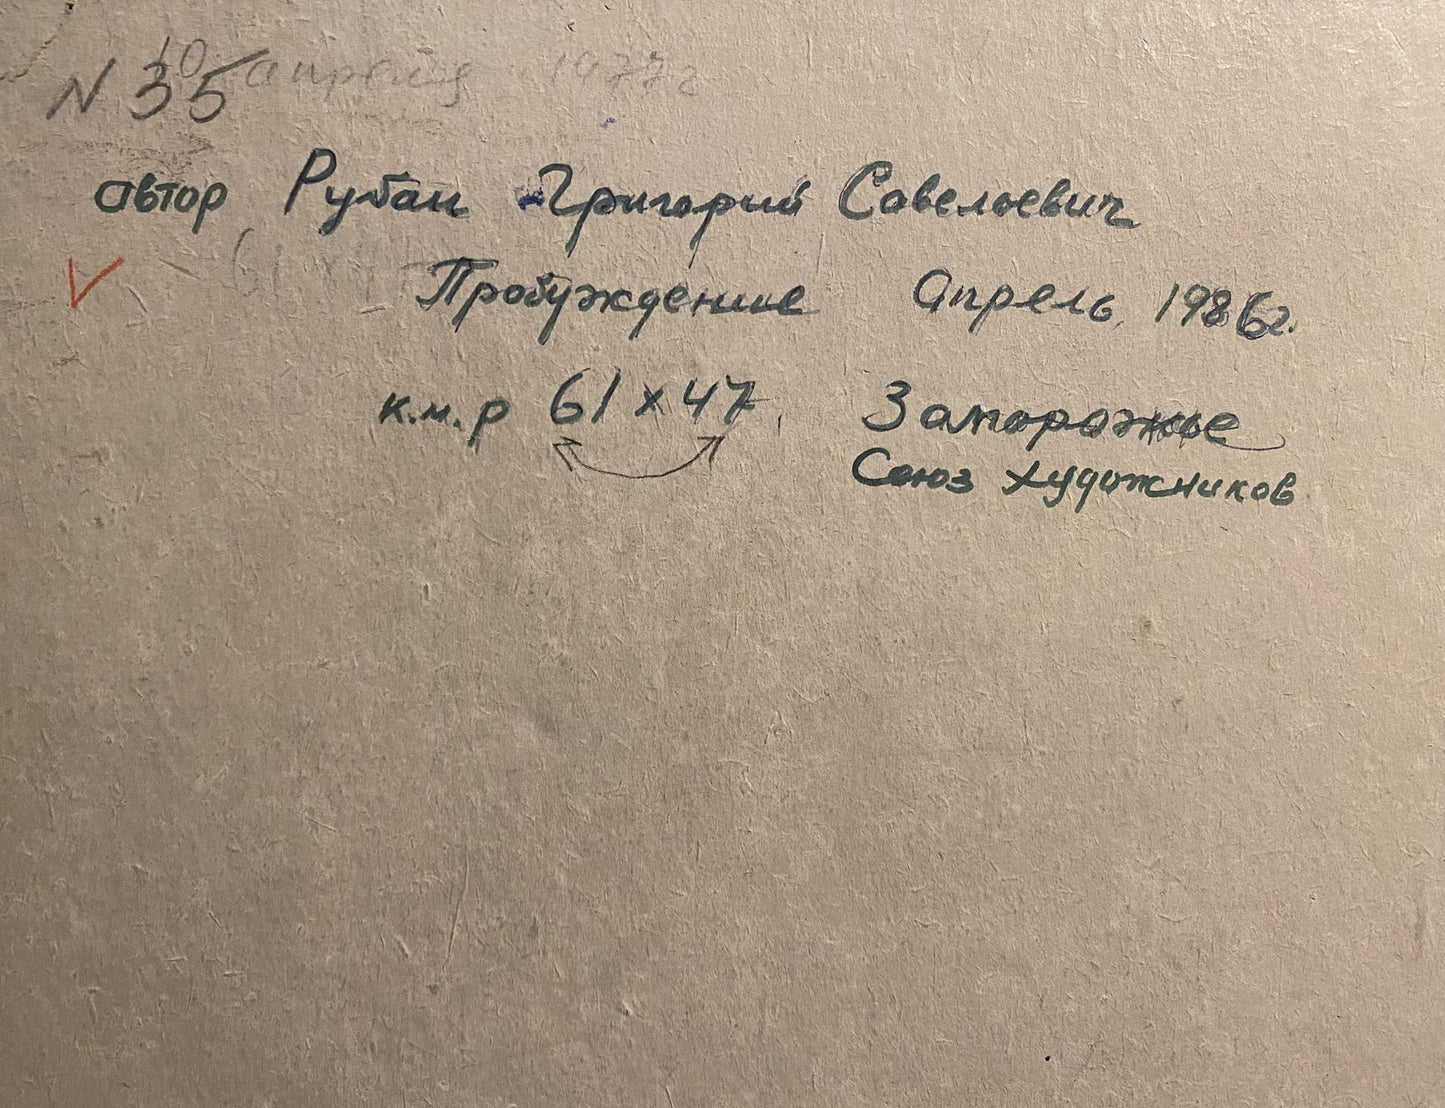 10 апреля 1977г
N 35
автор Рубан Григорий Савельевич
61 x 47
Пробуждение Апрель, 1986г.
к.м.р 61 x 47, Запорожье
Союз художников